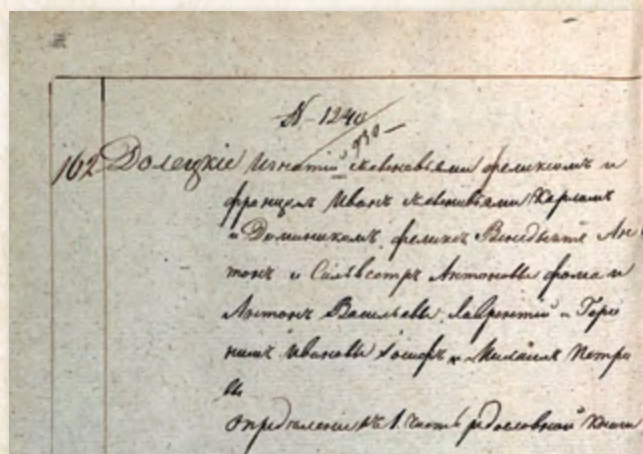 N 1240
930
162 Долецкие Игнатий с сыновьями феликсом и
францом Иван с сыновьями Карлом
и Домиником, феликс Венедыкт Ан
тон и Сильвестр Антоновы фома и
Антон Васильевы, Лаврентий и Геро
ним Ивановы Іосиф и Михаил Петро
вы
определение въ 1. часть родословной книги